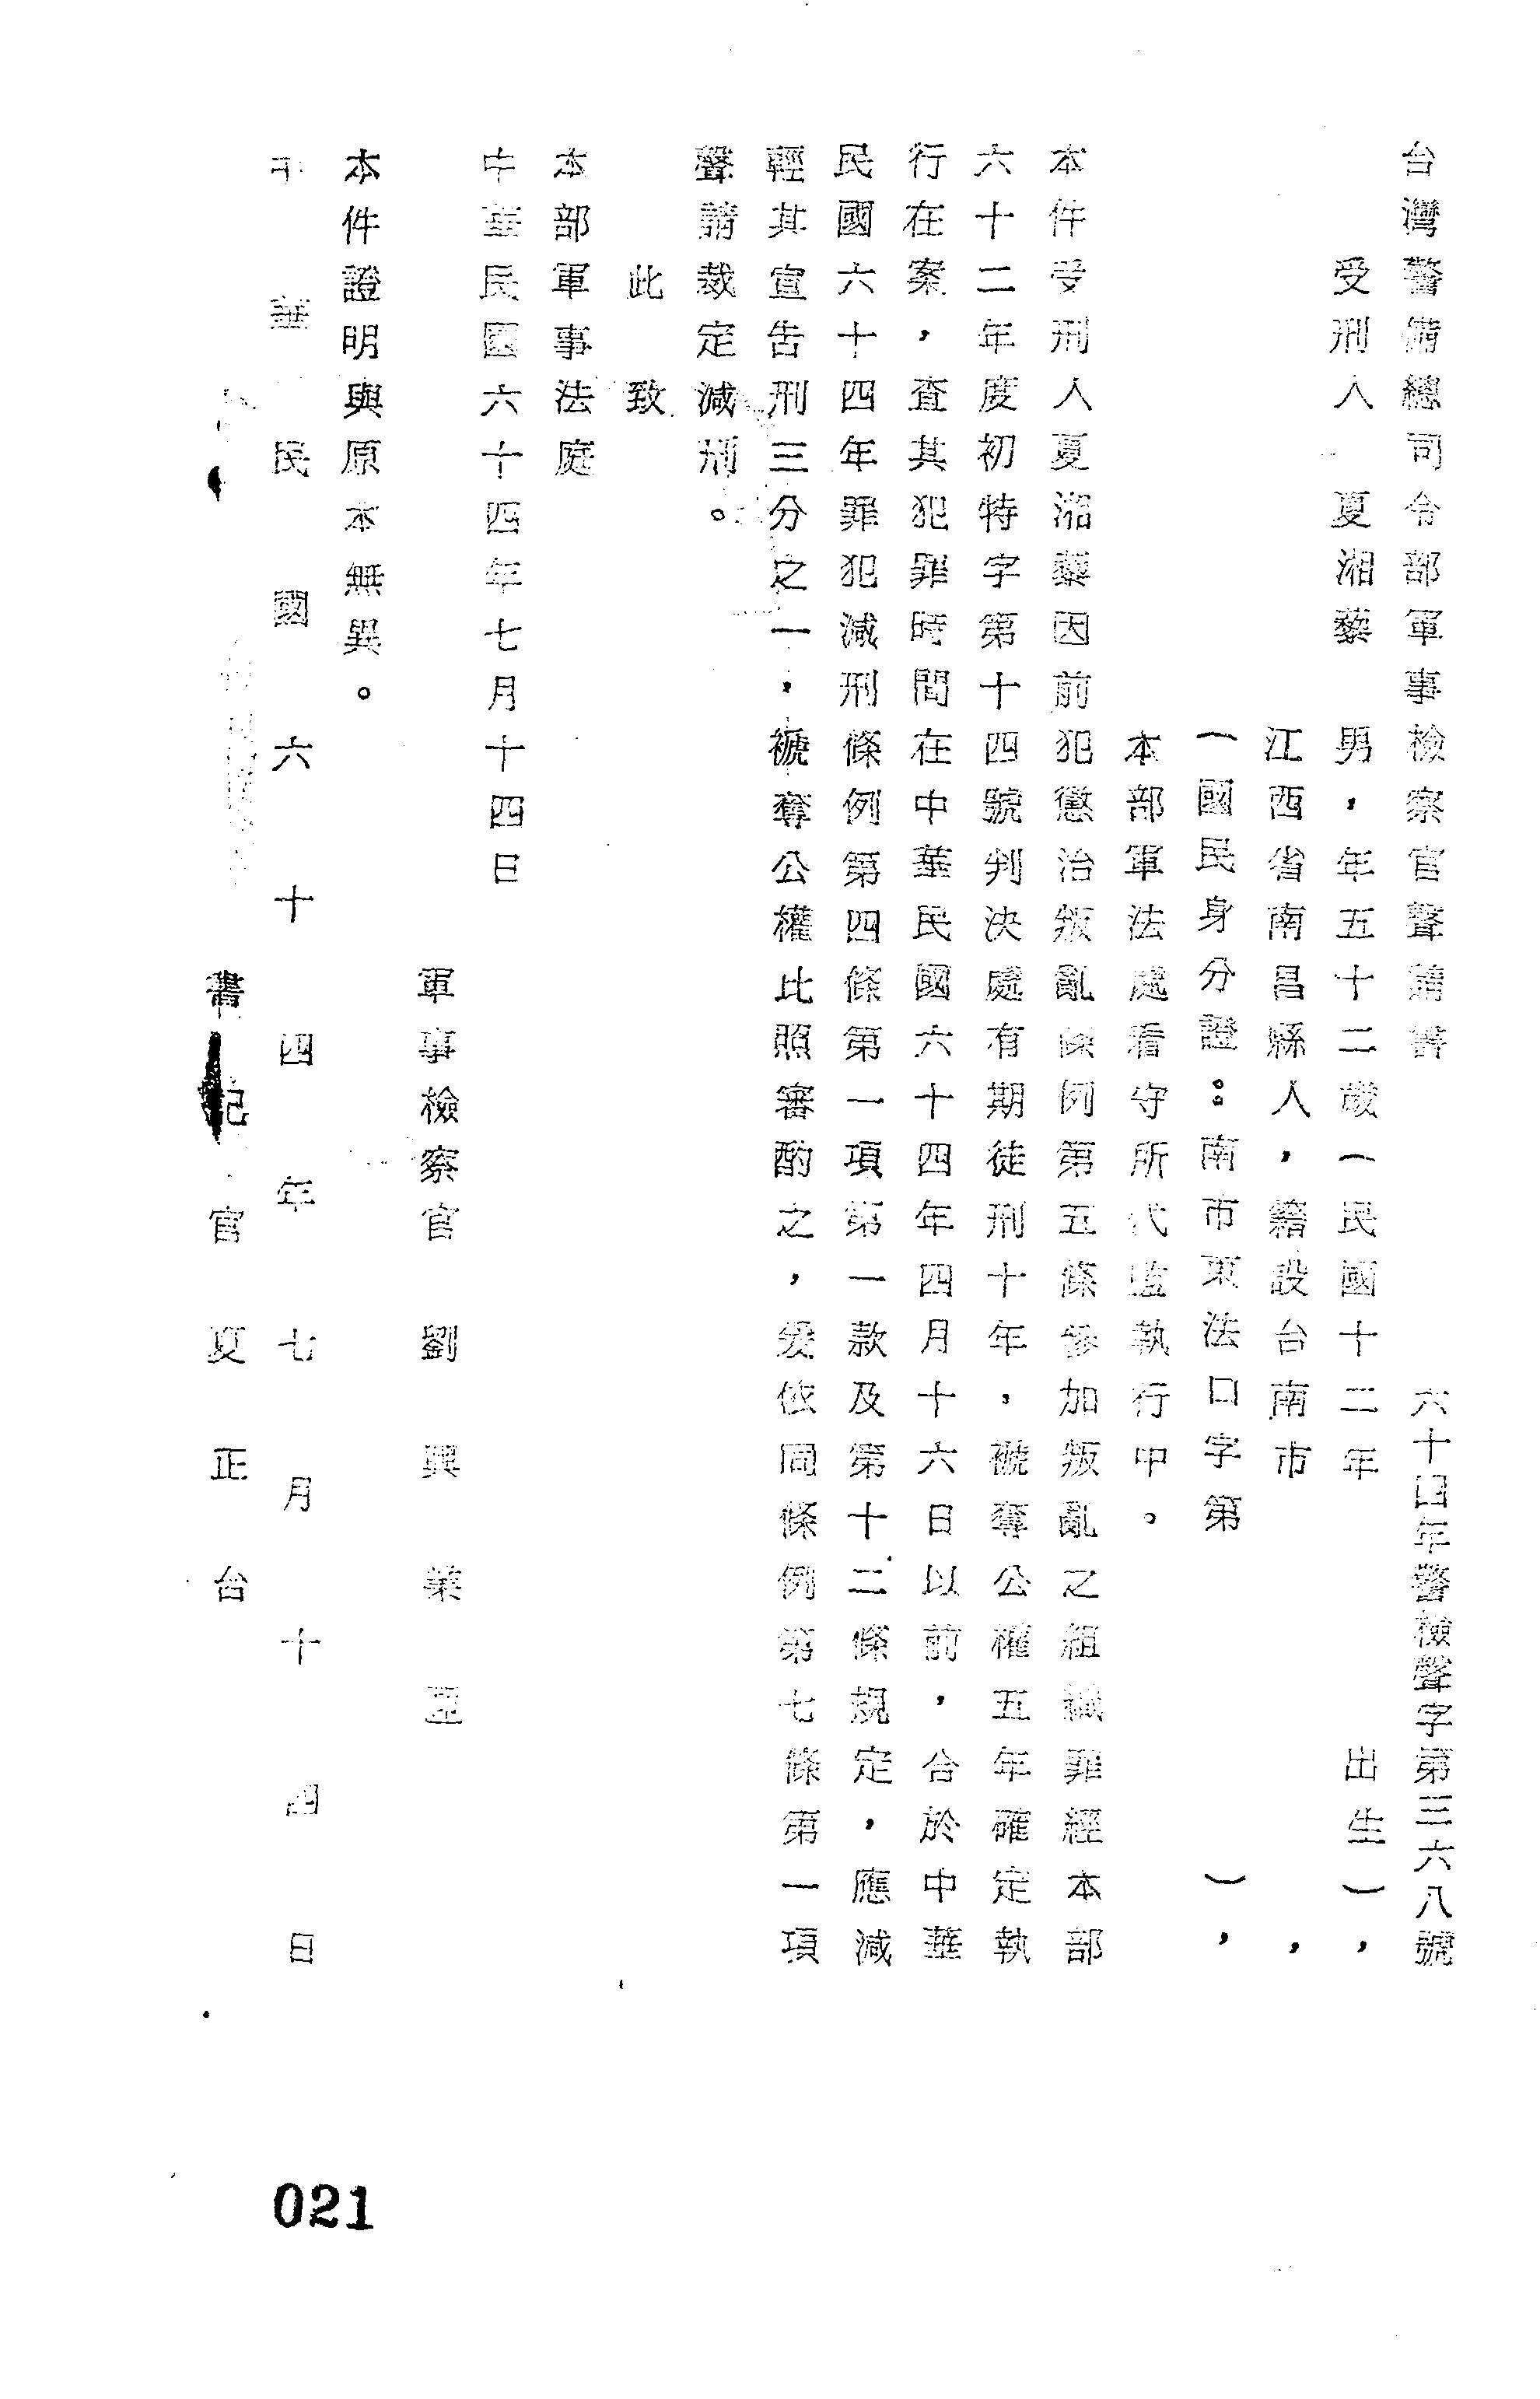 台灣警備總司令部軍事檢察官聲請書
六十四年警檢聲字第三六八號
受刑人 夏湘藜 男，年五十二歲（民國十二年 出生），
江西省南昌縣人，籍設台南市 ，
（國民身分證：南市東法口字第 ），
本部軍法處看守所代監執行中。
本件受刑人夏湘藜因前犯懲治叛亂條例第五條參加叛亂之組織罪經本部
六十二年度初特字第十四號判決處有期徒刑十年，褫奪公權五年確定執
行在案，查其犯罪時間在中華民國六十四年四月十六日以前，合於中華
民國六十四年罪犯減刑條例第四條第一項第一款及第十二條規定，應減
輕其宣告刑三分之一，褫奪公權比照審酌之，爰依同條例第七條第一項
聲請裁定減刑。
此致
本部軍事法庭
中華民國六十四年七月十四日
軍事檢察官 劉興業
本件證明與原本無異。
中華民國六十四年七月十四日
書記官 夏正台
021